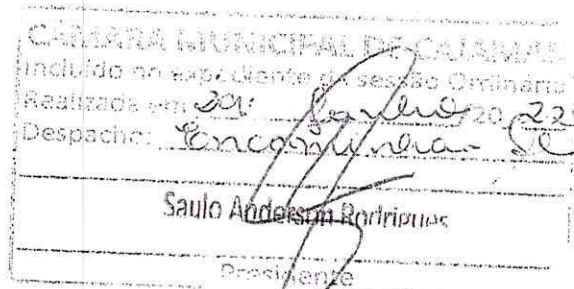 CÂMARA MUNICIPAL DE CAJAMAR
Incluído no expediente da sessão Ordinária
Realizada em 20 22
Despacho: Encaminha-se
Saulo Anderson Rodrigues
Presidente